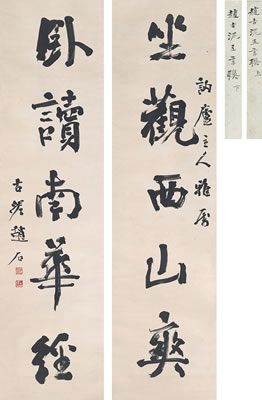 坐觀西山爽
訥廬主人雅属
卧讀南華經
古泥趙石
趙古泥五言聯 上
趙古泥五言聯 下